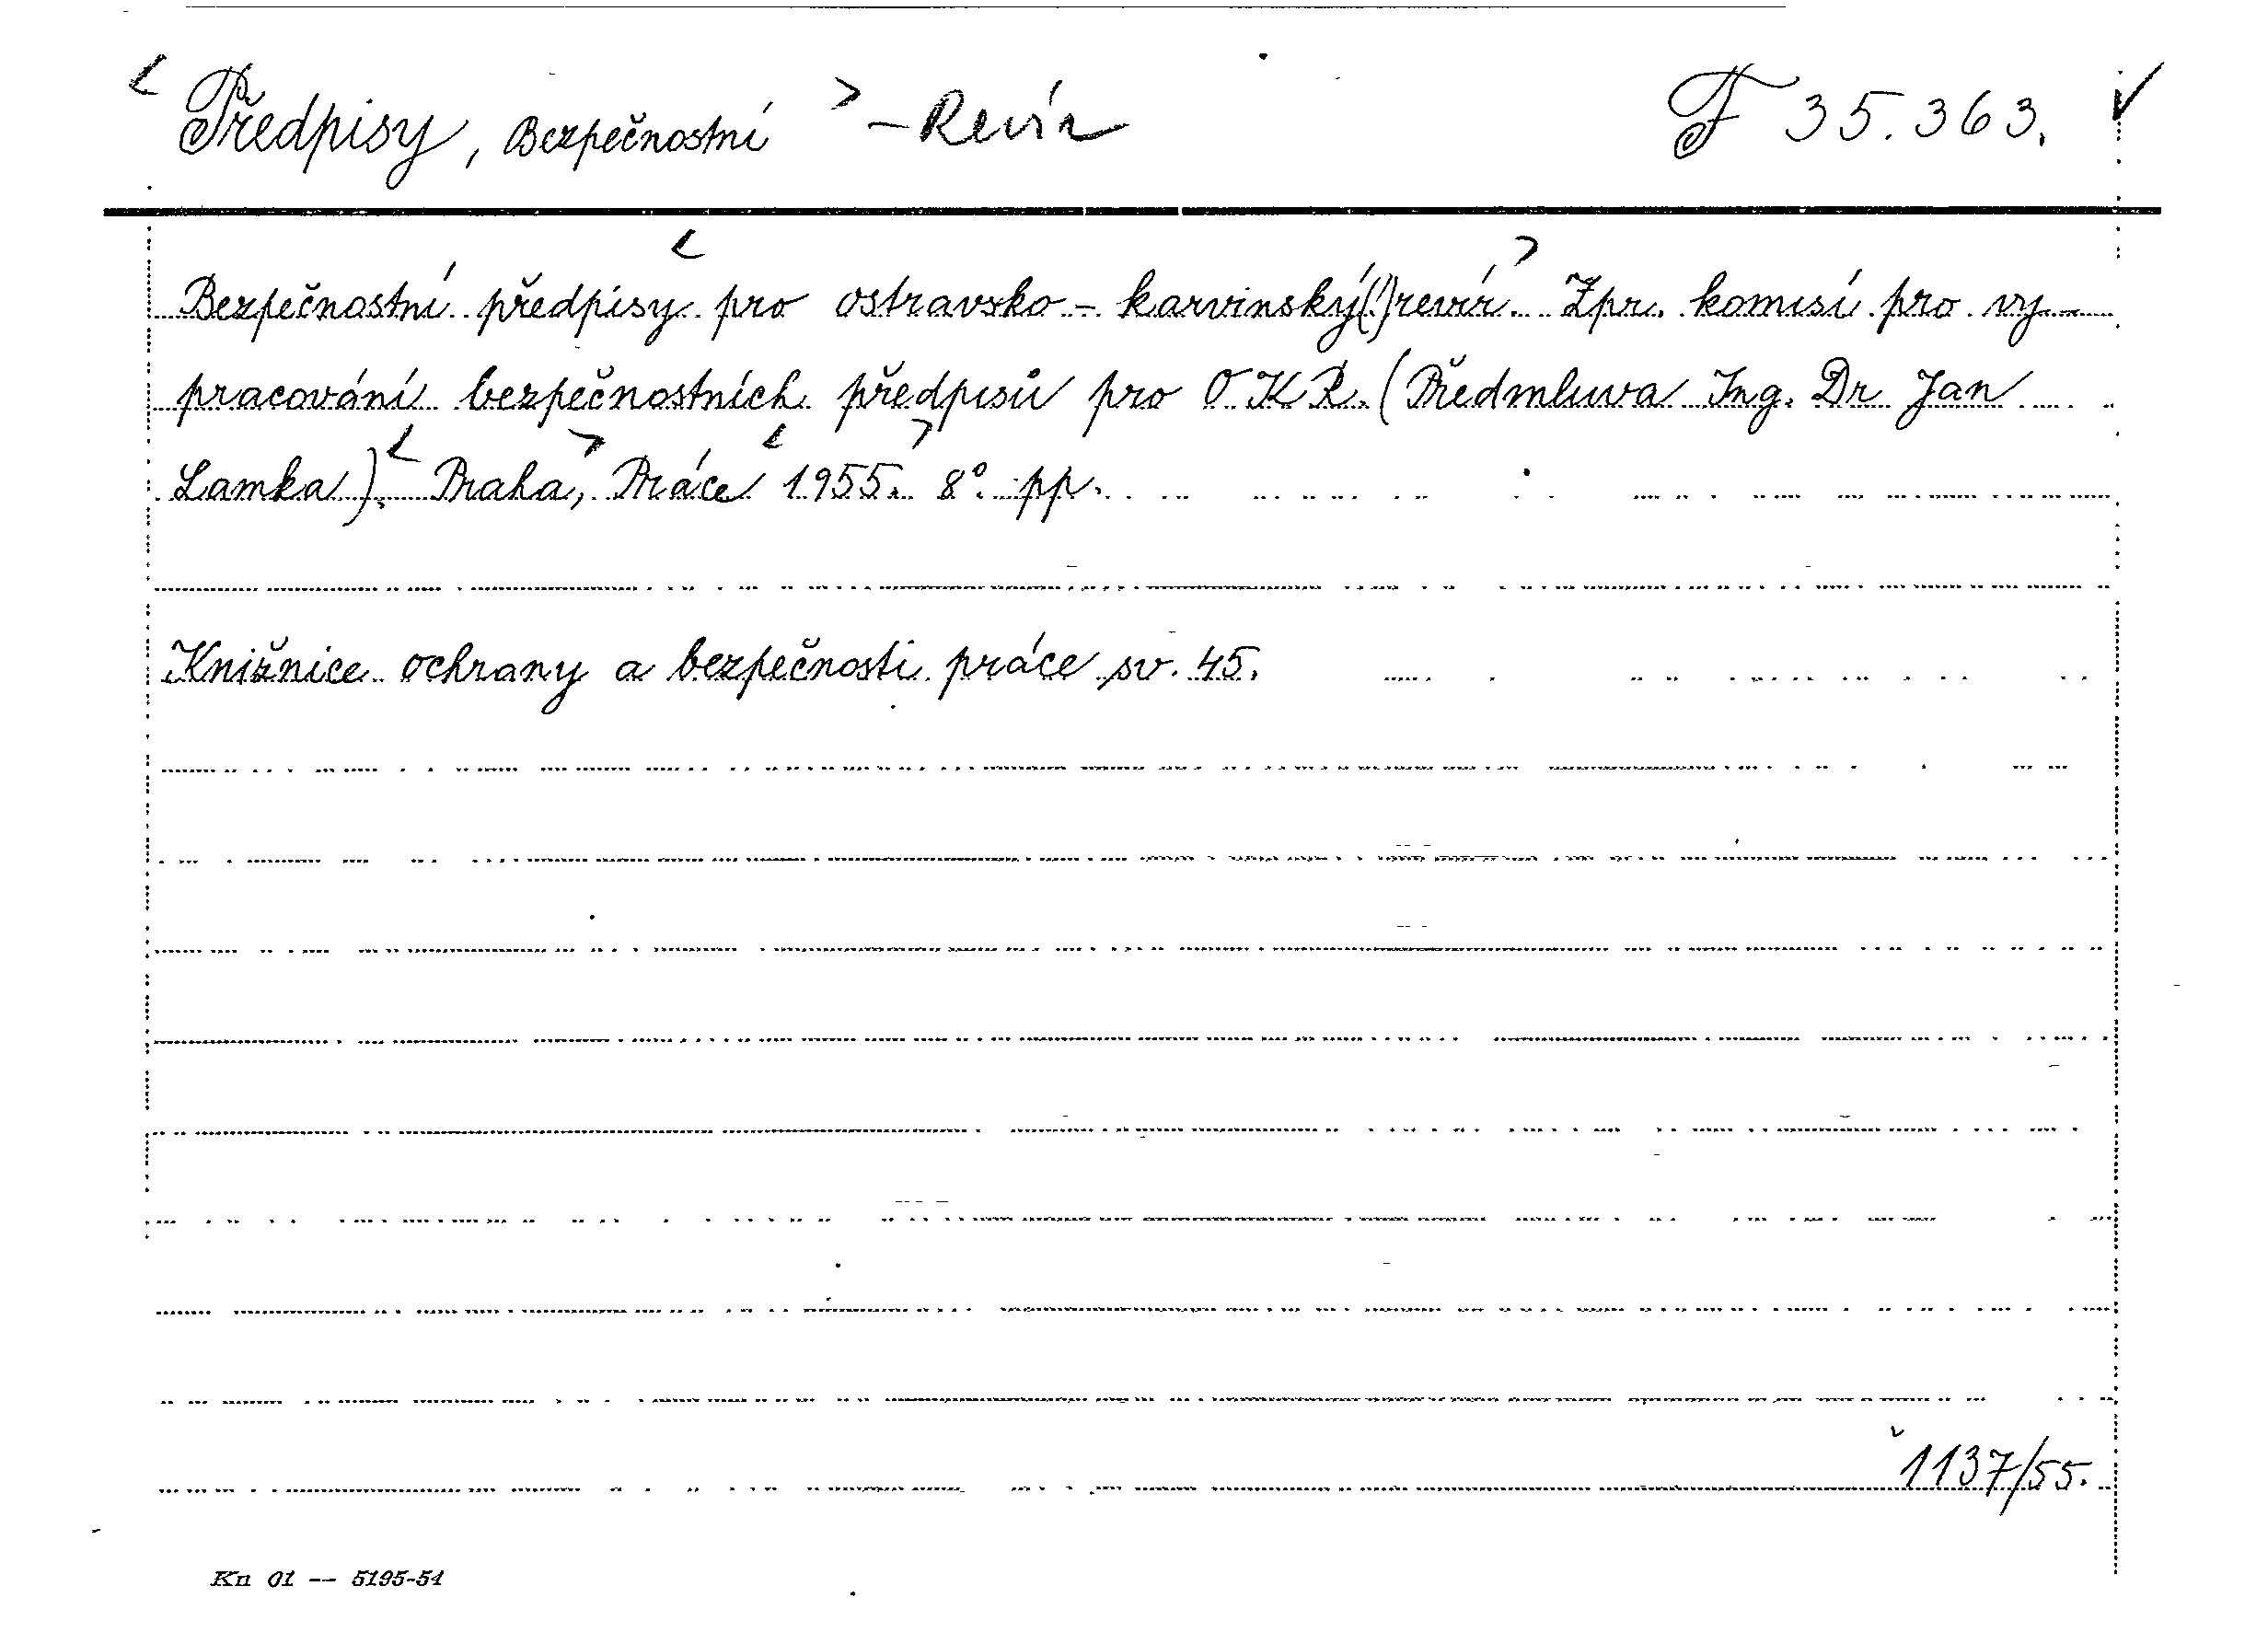 < Předpisy, Bezpečnostní > – Revír F 35.363. ✓
Bezpečnostní předpisy pro < ostravsko – karvinský(!) revír. > Zpr. komisí pro vy-
pracování bezpečnostních předpisů pro O.K.R. (Předmluva Ing. Dr. Jan
Lamka). < Praha, > Práce < 1955. > 8°. pp.
Knižnice ochrany a bezpečnosti práce sv. 45.
1137/55.
Kn 01 -- 5195-54